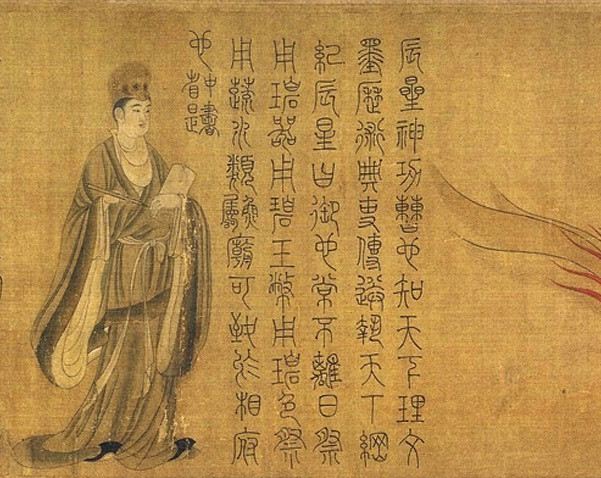 辰曐神功曹也知天下理文
墨歷術典吏傳送執天下綱
紀辰星日御也常不離日祭
用碧器用碧玉幣用碧色祭
用蔬水類魚屬廟可致於相府
也中書省是